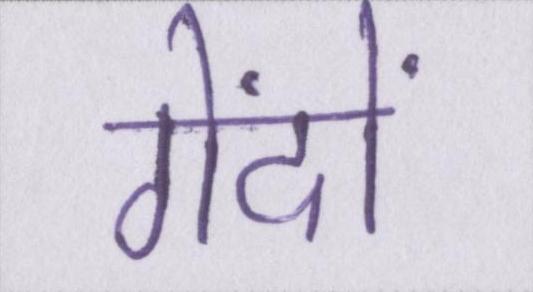 गेंदों